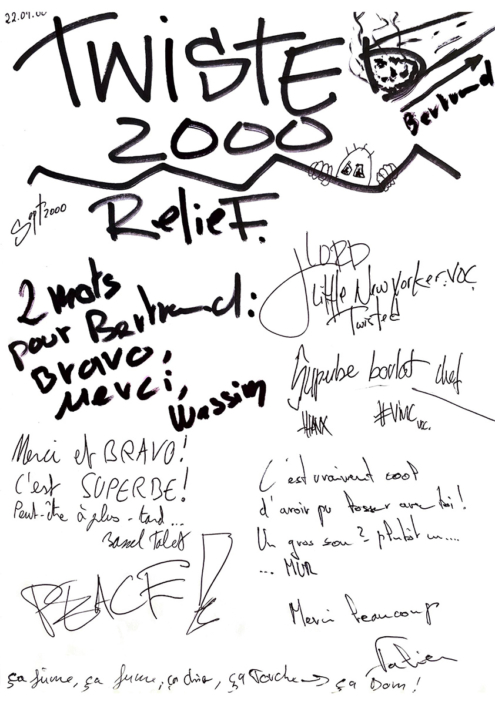 22.04.00
TWISTED
Bertrand
2000
Sept 2000
RelieF.
2 mots
pour Bertrand:
Bravo,
Merci,
Wassim
LORD
Little New Yorker.voc.
Twisted
boulot chef
#VMC voc.
Merci et BRAVO!
C'est SUPERBE!
Peut-être à plus-tard...
PEACE!
C'est vraiment cool
d'avoir pu bosser avec toi!
Un gros son? plutôt un....
... MUR
Merci beaucoup
Fabien
ça fume, ça fume, ça
ça Dom!